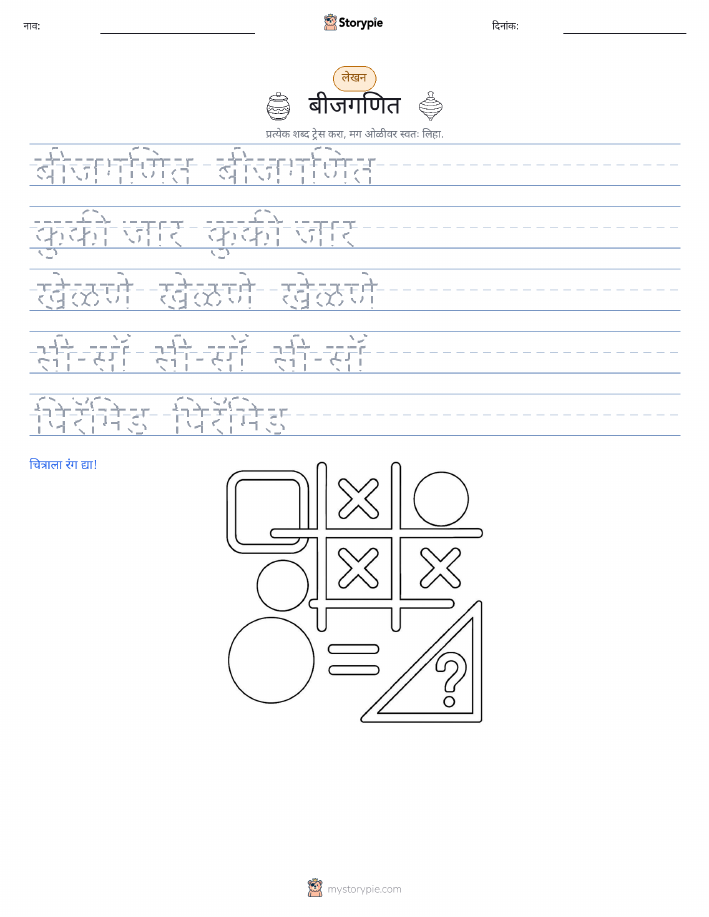 नाव:
Storypie
दिनांक:
लेखन
बीजगणित
प्रत्येक शब्द ट्रेस करा, मग ओळीवर स्वतः लिहा.
बीजगणित बीजगणित
कुकी जार कुकी जार
खेळणे खेळणे खेळणे
सी-सॉ सी-सॉ सी-सॉ
पिरॅमिड पिरॅमिड
चित्राला रंग द्या!
?
mystorypie.com